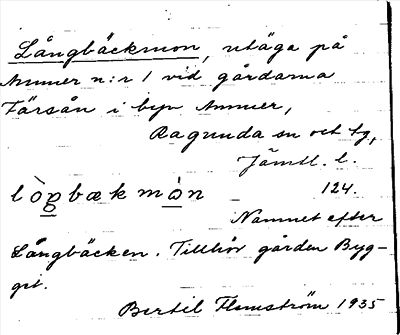 Långbäckmon, utäga på
Ammer n:r 1 vid gårdarna
Färsån i byn Ammer,
Ragunda sn och tg,
Jämtl. l.
lòŋbækmòn 124.
Namnet efter
Långbäcken. Tillhör gården Byg-
get.
Bertil Flemström 1935